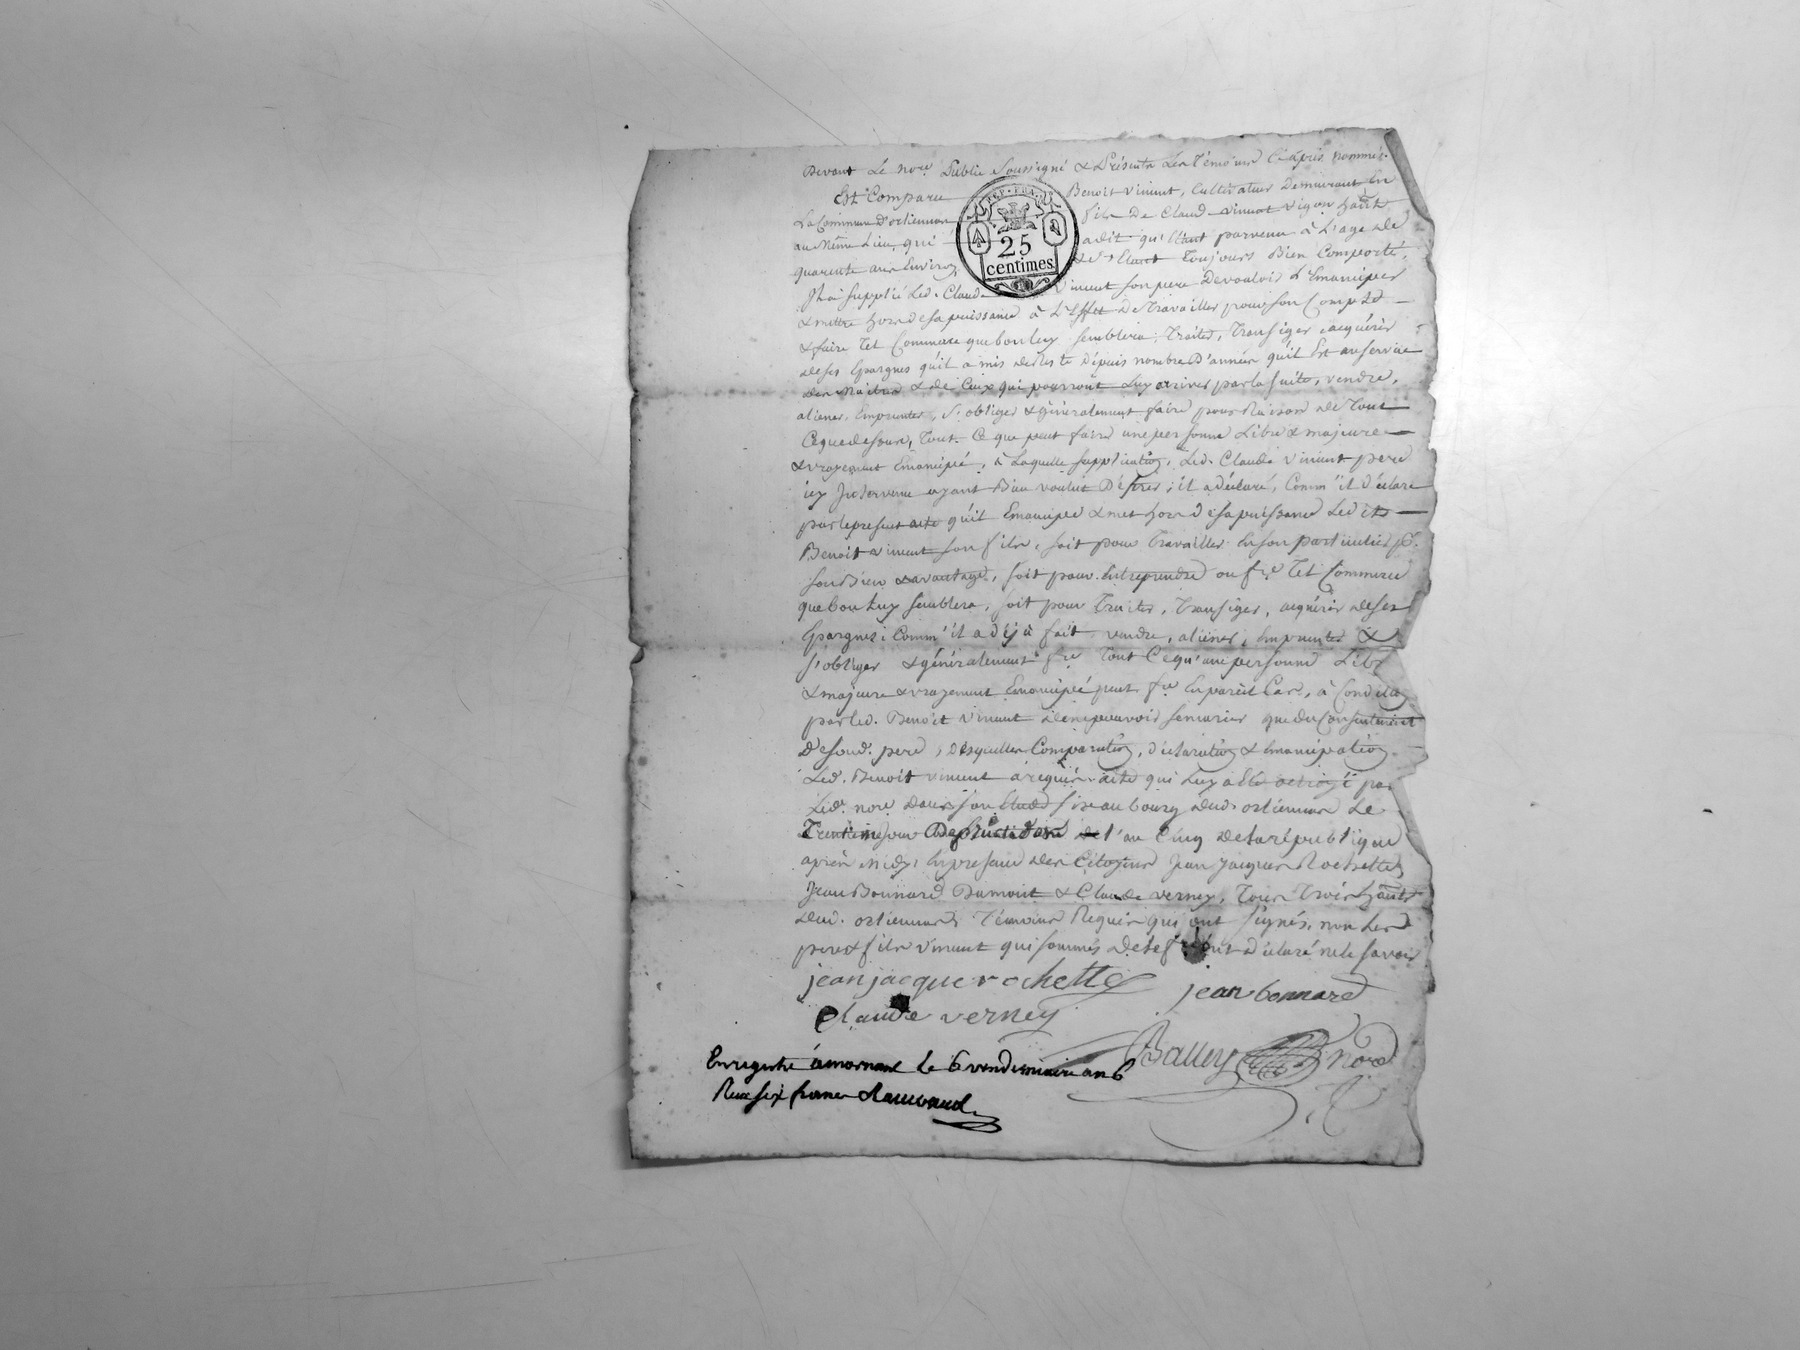 Devant Le Nore. Public Soussigné & Présents Les Témoins Cy après nommés.
Est Comparu Benoit Vinunt, Cultivateur Demeurant En
La Commune D'orliennas fils De Claud Vinunt vigon habt
au Même Lieu, qui a dit qu'Etant parvenu à L'age de
quarente ans Environ, & s'Etant Toujours Bien Comporté,
Il a Supplié Led. Claud Vinunt son pere De vouloir L'Emanciper
& mettre hors de sa puissance à L'Effet De Travailler pour son Compte
& faire Tel Commerce que bon luy semblera, Traiter, Transiger, acquérir
de ses Epargnes qu'il a mis de Reste Depuis nombre D'année qu'il Est au service
des Maitres & de Ceux qui pourront Luy arriver par la suite, vendre,
aliener, Emprunter, s'obliger & généralement faire pour Raison de Tout
Ce que dessus, Tout Ce que peut faire une personne Libre & majeure
& vrayement Emancipé, à Laquelle supplication, Led. Claude Vinunt pere
icy Intervenu ayant Bien voulut Déférer, il a déclaré, Comm'il Déclare
par le present acte qu'il Emancipe & met hors de sa puissance Ledit
Benoit Vinunt son fils, soit pour Travailler En son particulier pr.
son Bien & avantage, soit pour Entreprendre ou fre. Tel Commerce
que bon Luy semblera, soit pour Traiter, Transiger, acquérir de ses
Epargnes Comm'il a déjà fait, vendre, aliener, Emprunter &
s'obliger & généralement fre. Tout Ce qu'une personne Libre
& majeure & vrayement Emancipé peut fre. En pareil Cas, à Condition
par led. Benoit Vinunt de ne pouvoir se marier que du Consentement
De sond. pere, Desquelles Comparution, déclaration & Emancipation
Led. Benoit Vinunt a requis acte qui Luy a Eté octroyé par
Led. nore. dans son Etude fise au bourg dud. orliennas Le
Trentieme jour De fructidor de l'an Cinq de la république
après midy, En presence des Citoyens Jean Jacques Rochette,
Jean Bonnard Dumont & Claude Verney, Tous Trois habts
dud. orlienas, Témoins Requis qui ont signés, non Les
pere & fils Vinunt qui sommés De le fre. ont déclaré ne le savoir
jean jacque rochette jean bonnard
Claude verney
Balley nore
Enregistré à mornant le 6 vendemiaire an 6
Reçu six francs
REP. FRA.
25
centimes